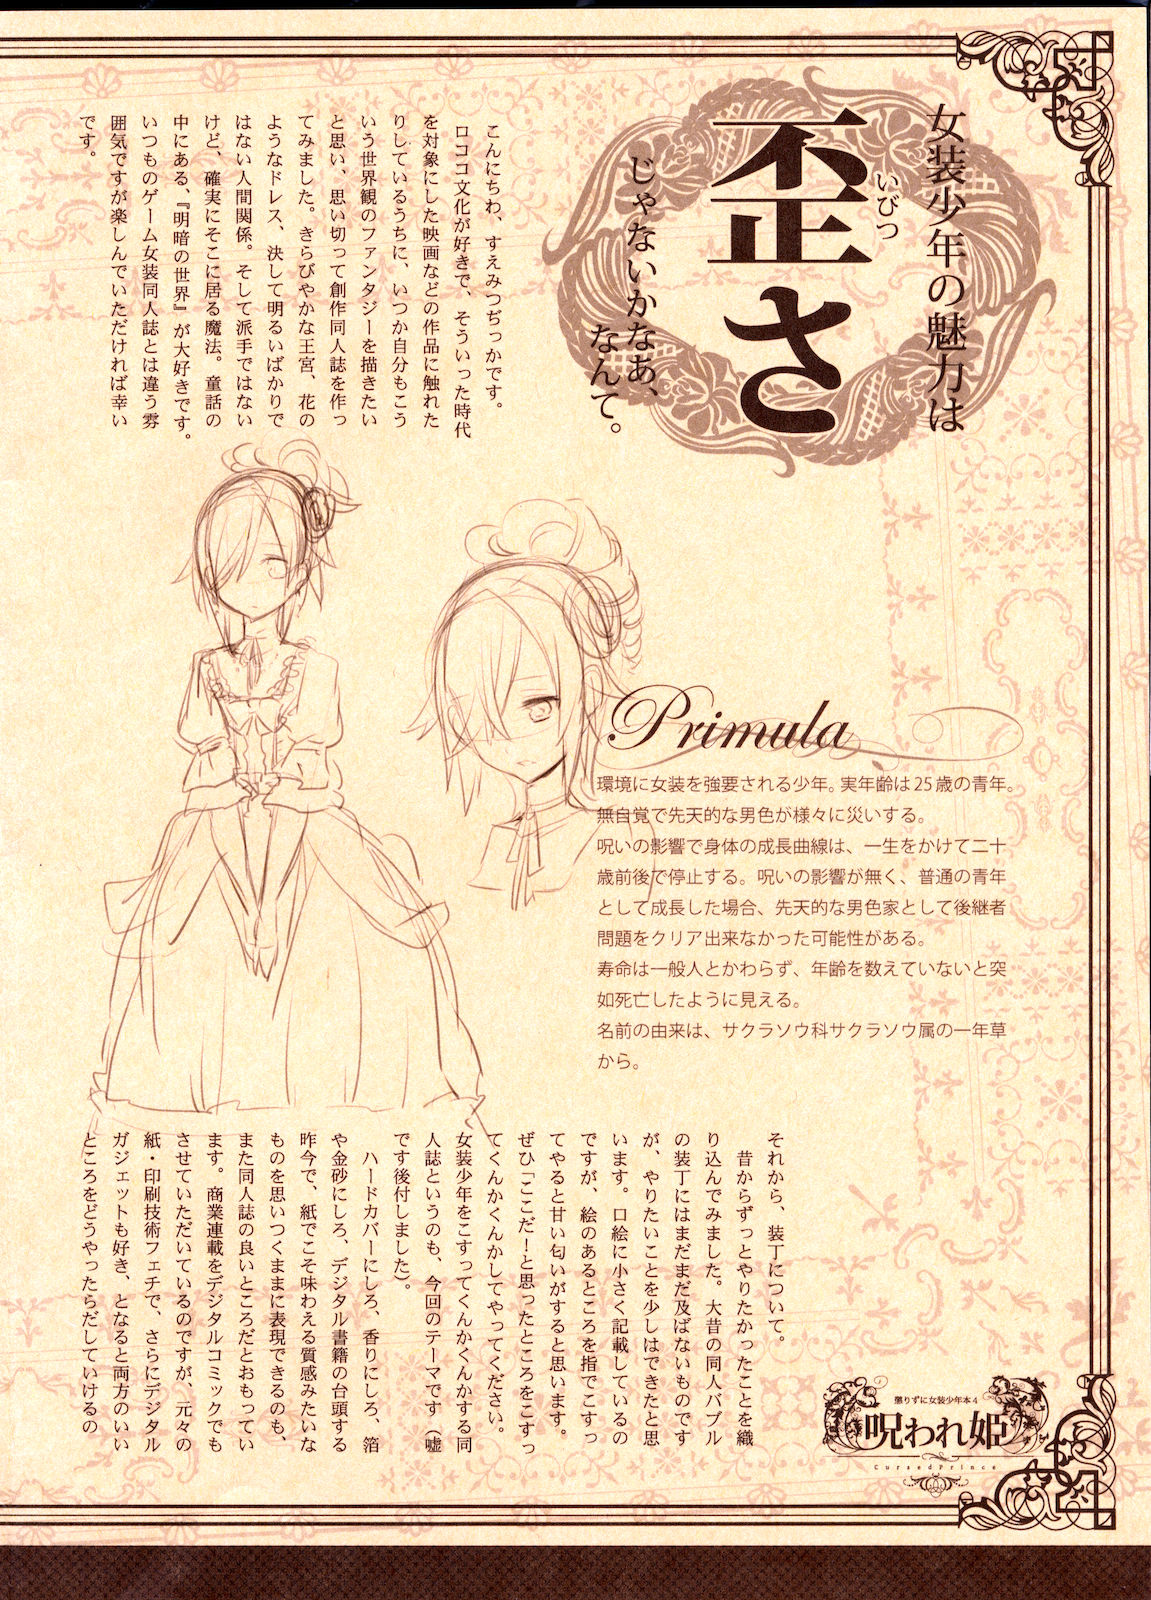 女装少年の魅力は
いびつ
歪さ
じゃないかなあ、
なんて。
こんにちわ、すえみつぢっかです。
ロココ文化が好きで、そういった時代
を対象にした映画などの作品に触れた
りしているうちに、いつか自分もこう
いう世界観のファンタジーを描きたい
と思い、思い切って創作同人誌を作っ
てみました。きらびやかな王宮、花の
ようなドレス、決して明るいばかりで
はない人間関係。そして派手ではない
けど、確実にそこに居る魔法。童話の
中にある、『明暗の世界』が大好きです。
いつものゲーム女装同人誌とは違う雰
囲気ですが楽しんでいただければ幸い
です。
Primula
環境に女装を強要される少年。実年齢は25歳の青年。
無自覚で先天的な男色が様々に災いする。
呪いの影響で身体の成長曲線は、一生をかけて二十
歳前後で停止する。呪いの影響が無く、普通の青年
として成長した場合、先天的な男色家として後継者
問題をクリア出来なかった可能性がある。
寿命は一般人とかわらず、年齢を数えていないと突
如死亡したように見える。
名前の由来は、サクラソウ科サクラソウ属の一年草
から。
それから、装丁について。
昔からずっとやりたかったことを織
り込んでみました。大昔の同人バブル
の装丁にはまだまだ及ばないものです
が、やりたいことを少しはできたと思
います。口絵に小さく記載しているの
ですが、絵のあるところを指でこすっ
てやると甘い匂いがすると思います。
ぜひ「ここだ！と思ったところをこすっ
てくんかくんかしてやってください。
女装少年をこすってくんかくんかする同
人誌というのも、今回のテーマです（嘘
です後付しました）。
ハードカバーにしろ、香りにしろ、箔
や金砂にしろ、デジタル書籍の台頭する
昨今で、紙でこそ味わえる質感みたいな
ものを思いつくままに表現できるのも、
また同人誌の良いところだとおもってい
ます。商業連載をデジタルコミックでも
させていただいているのですが、元々の
紙・印刷技術フェチで、さらにデジタル
ガジェットも好き、となると両方のいい
ところをどうやったらだしていけるの
懲りずに女装少年本4
呪われ姫
CursedPrince